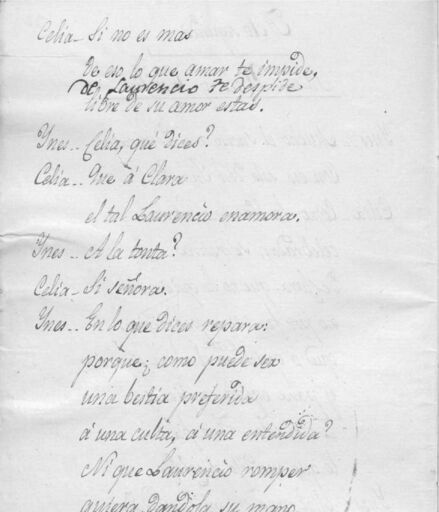 Celia - Si no es mas
de eso lo que amar te impide,
de Laurencio te despide
libre de su amor estas.
Ynes - Celia, qué dices?
Celia - Que á Clara
el tal Laurencio enamora.
Ynes - A la tonta?
Celia - Si señora.
Ynes - En lo que dices repara:
porque; como puede ser
una bestia preferida
á una culta, á una entendida?
Ni que Laurencio romper
quiera, dandola su mano